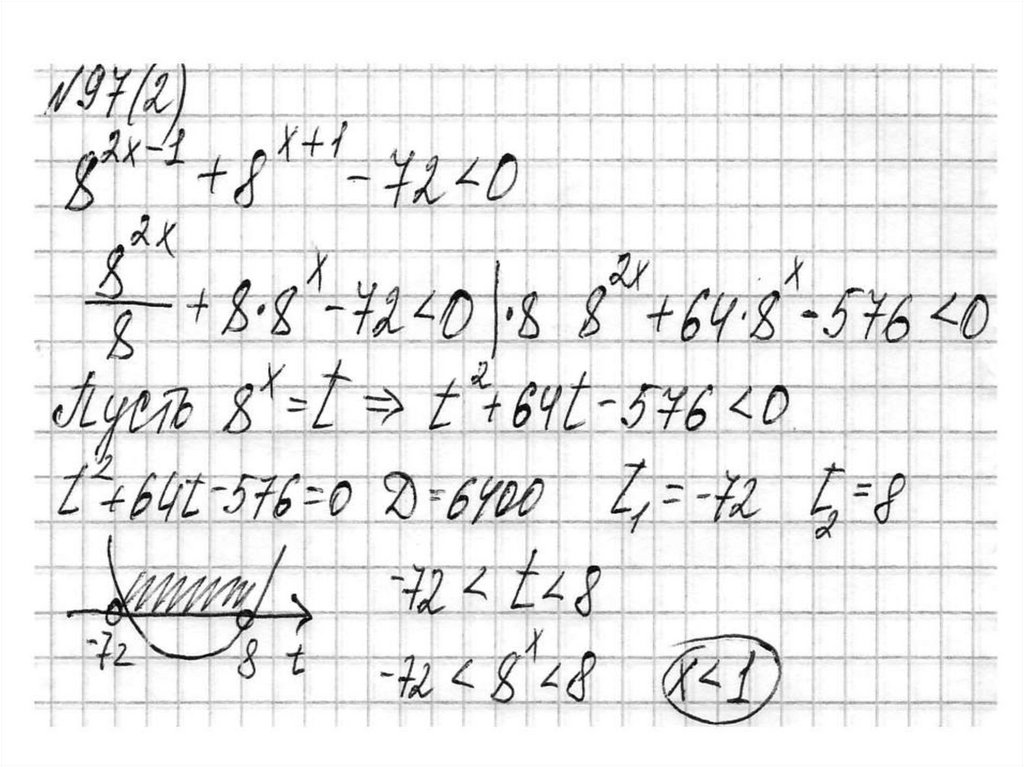 №97(2)
8^{2x-1} + 8^{x+1} - 72 < 0
\frac{8^{2x}}{8} + 8·8^x - 72 < 0 | ·8 8^{2x} + 64·8^x - 576 < 0
Пусть 8^x = t ⇒ t^2 + 64t - 576 < 0
t^2 + 64t - 576 = 0 D = 6400 t_1 = -72 t_2 = 8
-72 < t < 8
-72 8 t
-72 < 8^x < 8 x < 1